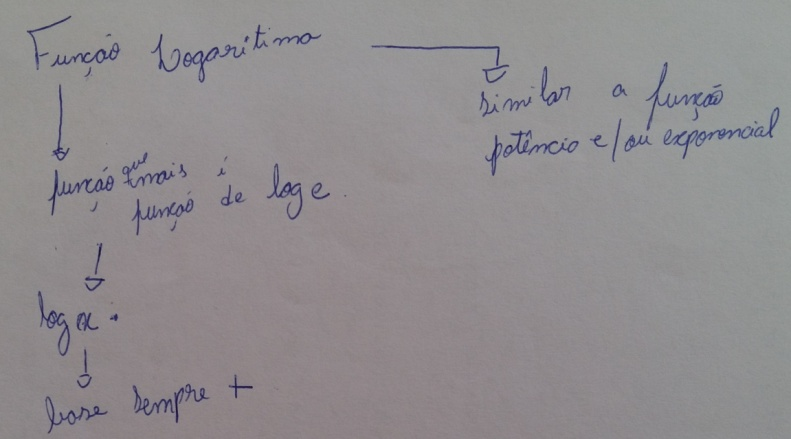 Função Logarítima
similar a função
potêncio e/ou exponencial
função que mais i
função de log e.
log x.
base sempre +